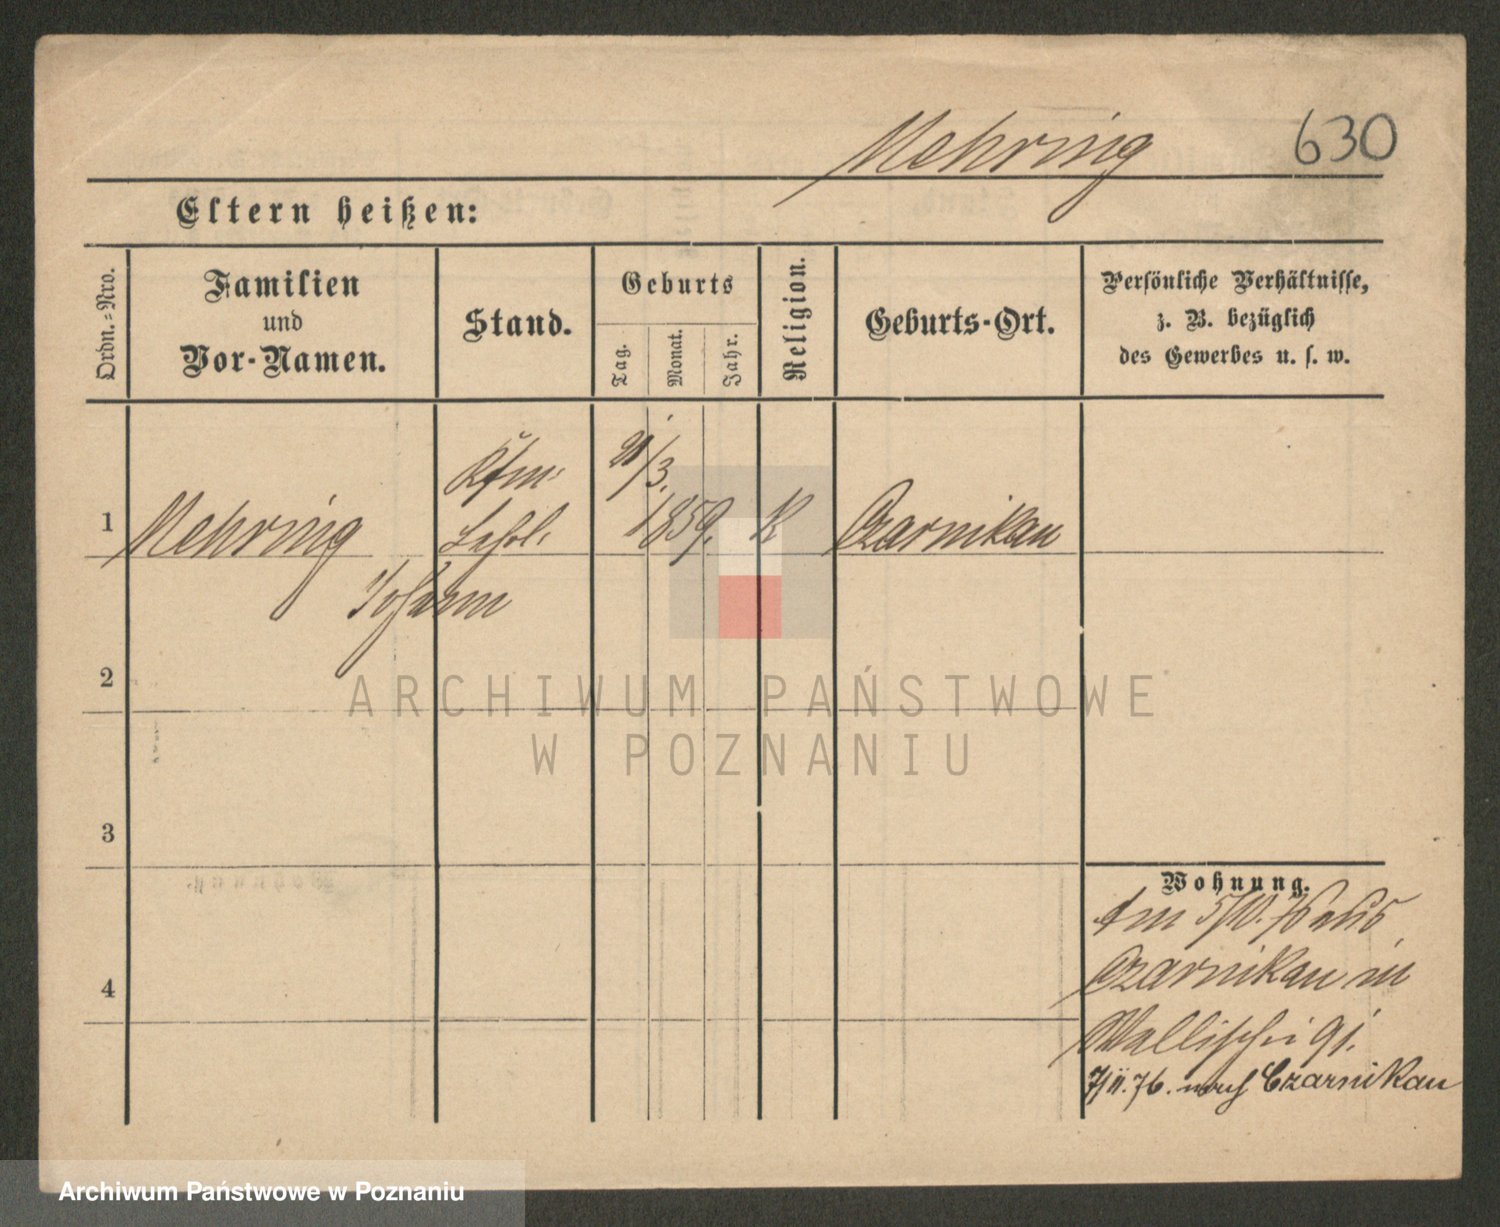 Mehring 630
Eltern heißen:
Ordn.-Nro.
Familien
und
Vor-Namen.
Stand.
Geburts
Tag.
Monat.
Jahr.
Religion.
Geburts-Ort.
Persönliche Verhältnisse,
z. B. bezüglich
des Gewerbes u. s. w.
1
Mehring
Johann
Kfm.
Lehrl.
/3.
1859.
K
Czarnikau
2
3
4
Wohnung.
Am 5/10. 76 aus
Czarnikau in
Wallischei 91.
7/11. 76. nach Czarnikau
ARCHIWUM PAŃSTWOWE
W POZNANIU
Archiwum Państwowe w Poznaniu